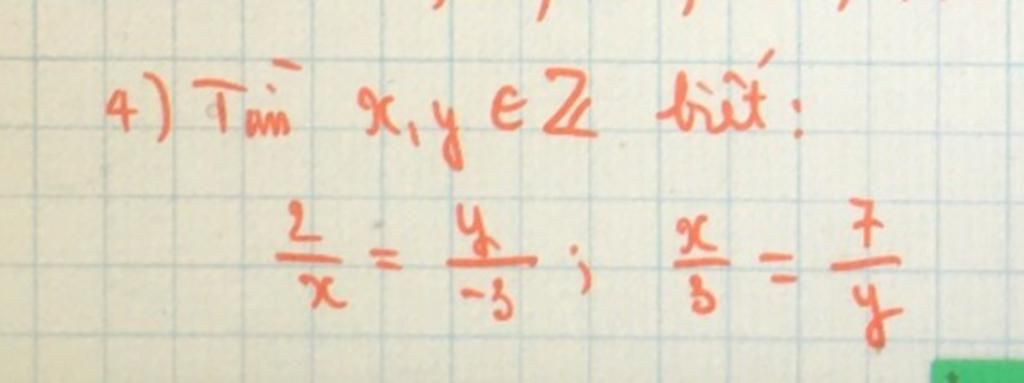 4) Tìm x, y ∈ ℤ biết:
2/x = y/-3 ; x/3 = 7/y